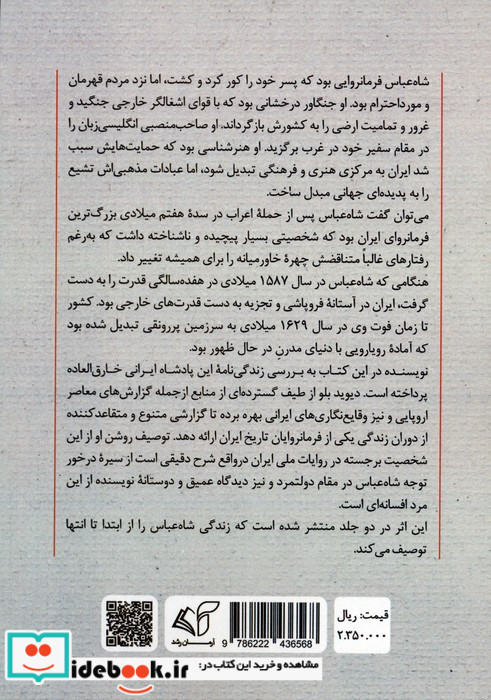 شاه‌عباس فرمانروایی بود که پسر خود را کور کرد و کشت، اما نزد مردم قهرمان
و مورداحترام بود. او جنگاور درخشانی بود که با قوای اشغالگر خارجی جنگید و
غرور و تمامیت ارضی را به کشورش بازگرداند. او صاحب‌منصبی انگلیسی‌زبان را
در مقام سفیر خود در غرب برگزید. او هنرشناسی بود که حمایت‌هایش سبب
شد ایران به مرکزی هنری و فرهنگی تبدیل شود، اما عبادات مذهبی‌اش تشیع
را به پدیده‌ای جهانی مبدل ساخت.
می‌توان گفت شاه‌عباس پس از حملهٔ اعراب در سدهٔ هفتم میلادی بزرگ‌ترین
فرمانروای ایران بود که شخصیتی بسیار پیچیده و ناشناخته داشت که به‌رغم
رفتارهای غالباً متناقضش چهرهٔ خاورمیانه را برای همیشه تغییر داد.
هنگامی که شاه‌عباس در سال ۱۵۸۷ میلادی در هفده‌سالگی قدرت را به دست
گرفت، ایران در آستانهٔ فروپاشی و تجزیه به دست قدرت‌های خارجی بود. کشور
تا زمان فوت وی در سال ۱۶۲۹ میلادی به سرزمین پررونقی تبدیل شده بود
که آمادهٔ رویارویی با دنیای مدرن در حال ظهور بود.
نویسنده در این کتاب به بررسی زندگی‌نامهٔ این پادشاه ایرانی خارق‌العاده
پرداخته است. دیوید بلو از طیف گسترده‌ای از منابع ازجمله گزارش‌های معاصر
اروپایی و نیز وقایع‌نگاری‌های ایرانی بهره برده تا گزارشی متنوع و متقاعدکننده
از دوران زندگی یکی از فرمانروایان تاریخ ایران ارائه دهد. توصیف روشن او از این
شخصیت برجسته در روایات ملی ایران درواقع شرح دقیقی است از سیرهٔ درخور
توجه شاه‌عباس در مقام دولتمرد و نیز دیدگاه عمیق و دوستانهٔ نویسنده از این
مرد افسانه‌ای است.
این اثر در دو جلد منتشر شده است که زندگی شاه‌عباس را از ابتدا تا انتها
توصیف می‌کند.
قیمت: ریال
۲.۳۵۰.۰۰۰
9 786222 436568
آرمان رشد
مشاهده و خرید این کتاب در:
idebook.ir